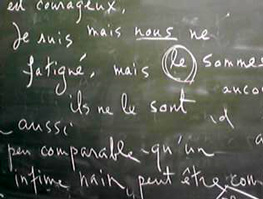 en courageux,
Je suis mais nous ne
fatigué, mais le sommes
auco
ils ne le sont
aussi
peu comparable qu'un
infime nain, peut être com